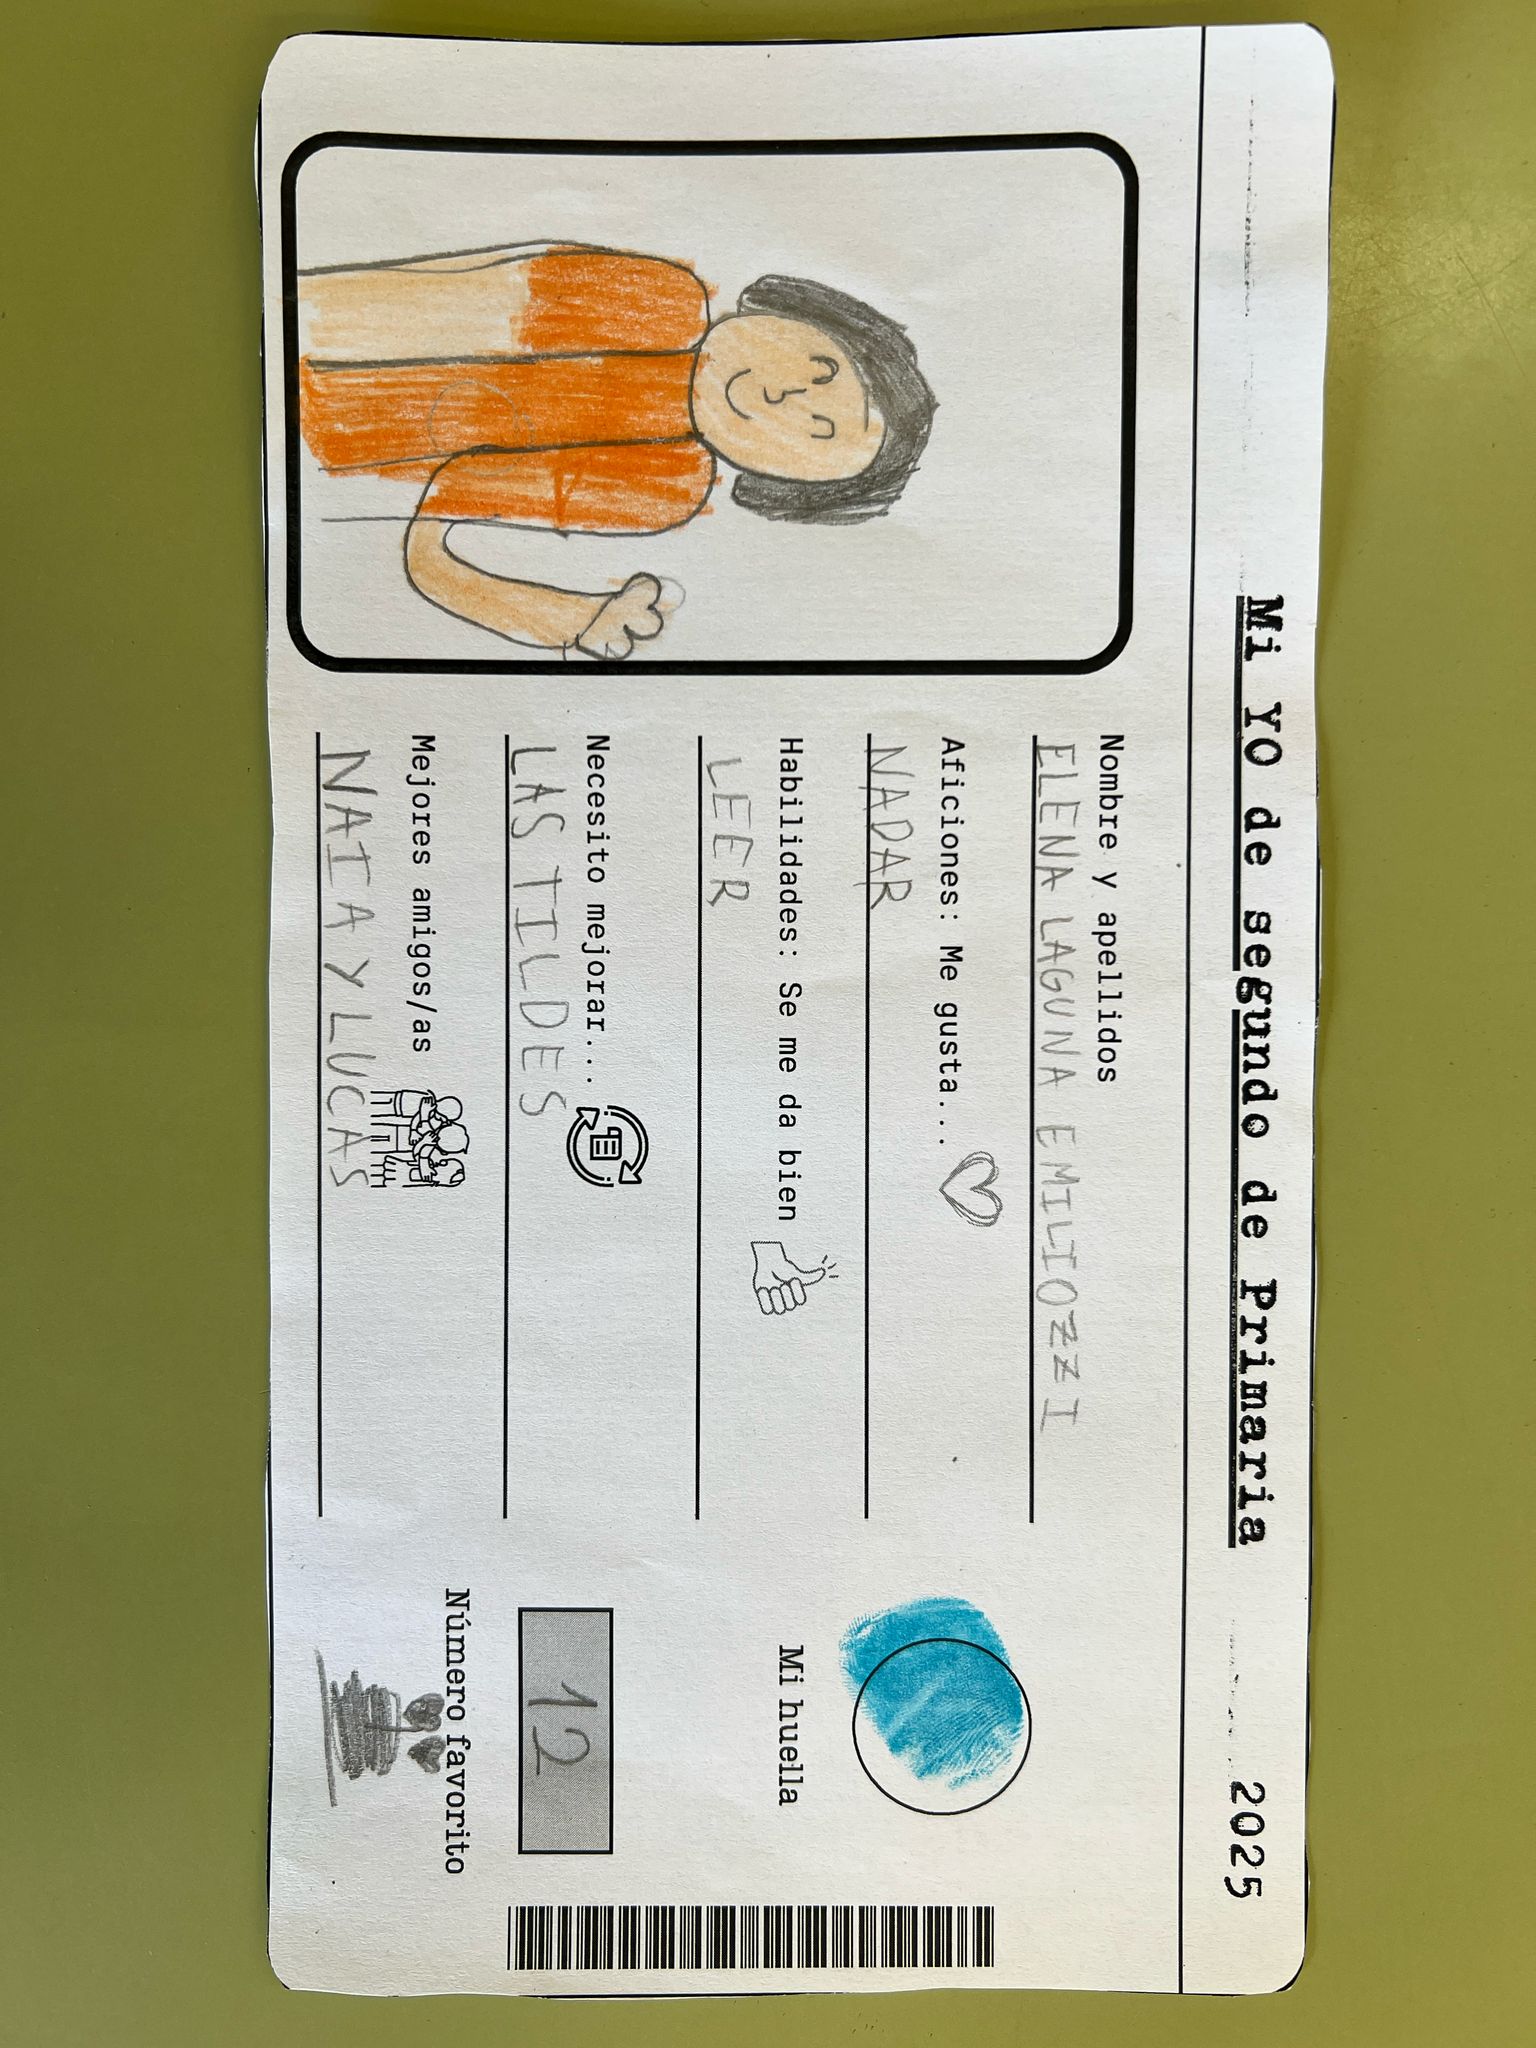 Mi YO de segundo de Primaria
2025
Nombre y apellidos
ELENA LAGUNA EMILIOZZI
Aficiones: Me gusta...
NADAR
Habilidades: Se me da bien
LEER
Necesito mejorar...
LAS TILDES
Mejores amigos/as
NAIA Y LUCAS
Mi huella
12
Número favorito